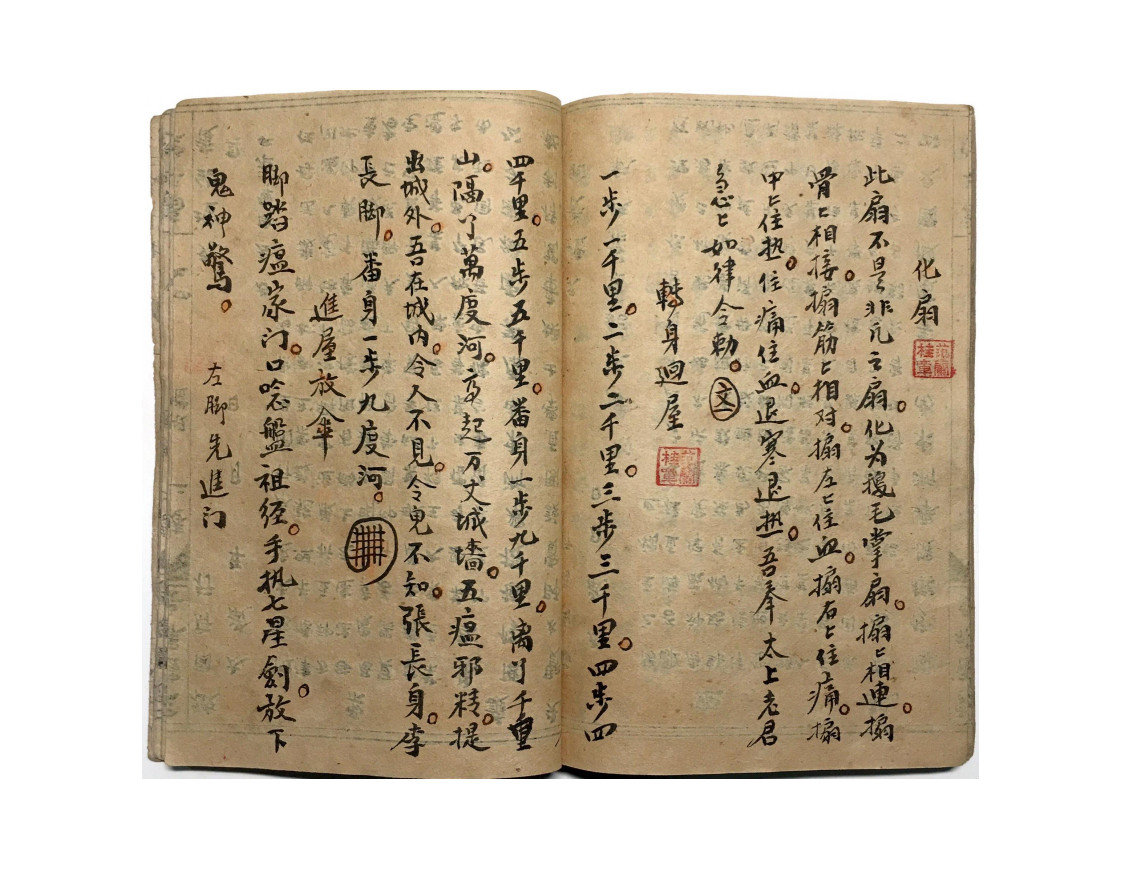 化扇
此扇不是非凡之扇。化为獲毛掌扇。搧〻相連。搧
骨〻相接。搧筋〻相对。搧左〻住血。搧右〻住痛。搧
中〻住热。住痛住血。退寒退热。吾奉太上老君
急〻如律令勅。
轉身迴屋
一步一千里。二步二千里。三步三千里。四步四
四千里。五步五千里。番身一步九千里。离了千里
山。隔了萬度河。享起万丈城墻。五瘟邪精。提
出城外。吾在城内。令人不見。令鬼不知。張長身。李
長脚。番身一步九度河。
進屋放傘
脚踏瘟家门。口唸盤祖经。手执七星劍。放下
鬼神驚。 左脚先進门